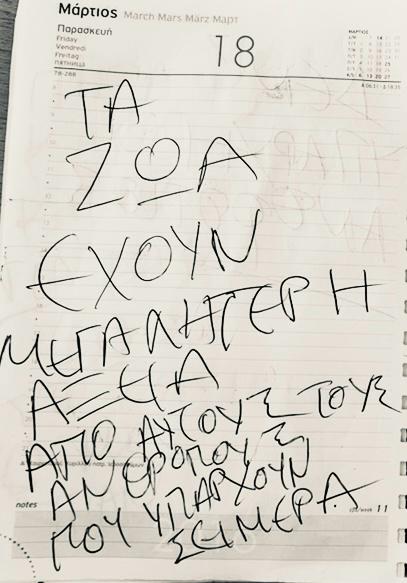 Μάρτιος March Mars März Март
Παρασκευή
Friday
Vendredi
Freitag
ПЯТНИЦА
78-288
18
ΜΑΡΤΙΟΣ
ΤΑ
ΖΩΑ
ΕΧΟΥΝ
ΜΕΓΑΛΗΤΕΡΗ
ΑΞΕΙΑ
ΑΠΟ ΑΥΤΟΥΣ ΤΟΥΣ
ΑΝΘΡΟΠΟΥΣ
ΠΟΥ ΥΠΑΡΧΟΥΝ
ΣΕΙΜΕΡΑ
notes
11